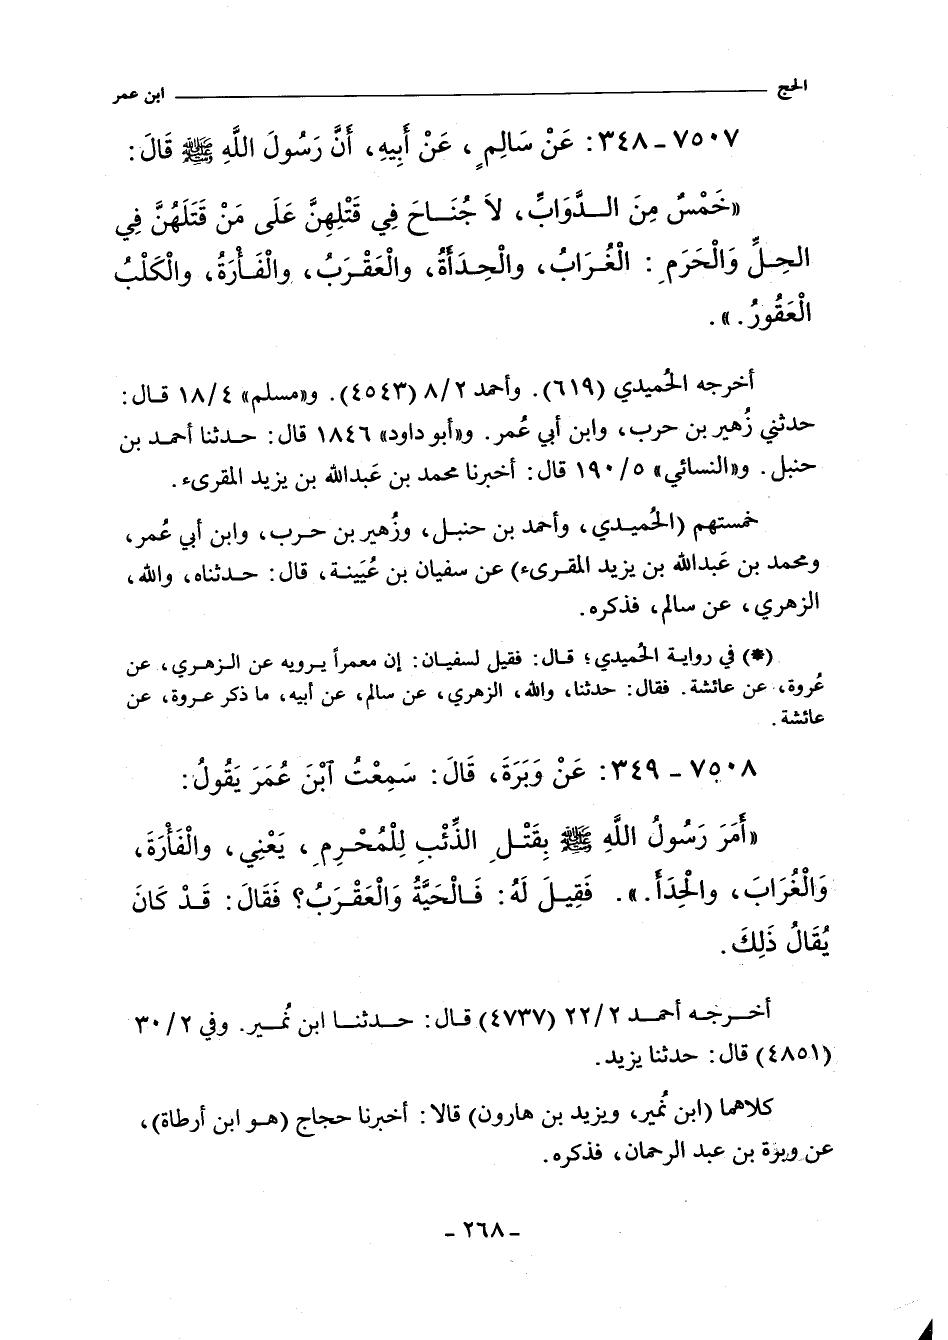 الحج ــــــــــــــــــــ ابن عمر
٧٥٠٧ـ٣٤٨: عَنْ سَالِمٍ، عَنْ أَبِيهِ، أَنَّ رَسُولَ اللَّهِ ﷺ قَالَ:
«خَمْسٌ مِنَ الـدَّوَابِّ، لاَ جُنَـاحَ فِي قَتْلِهِنَّ عَلَى مَنْ قَتَلَهُنَّ فِي
الحِـلِّ وَالْحَرَمِ: الْغُرَابُ، والْحِـدَأَةُ، والْعَقْرَبُ، والْفَـأْرَةُ، والْكَلْبُ
الْعَقُورُ.».
أخرجه الحُميدي (٦١٩). وأحمد ٨/٢ (٤٥٤٣). و«مسلم» ١٨/٤ قـال:
حدثني زُهير بن حرب، وابن أبي عُمر. و«أبو داود» ١٨٤٦ قال: حـدثنا أحمـد بن
حنبل. و«النسائي» ١٩٠/٥ قال: أخبرنا محمد بن عَبدالله بن يزيد المقرىء.
خمستهم (الحُميـدي، وأحمد بن حنبـل، وزُهير بن حـرب، وابن أبي عُمر،
ومحمد بن عَبدالله بن يزيد المقـرىء) عن سفيان بن عُيَينـة، قال: حـدثناه، والله،
الزهري، عن سالم، فذكره.
(*) في روايـة الحُميدي؛ قـال: فقيل لسفيـان: إن معمراً يـرويه عن الـزهري، عن
عُروة، عن عائشة. فقال: حدثنا، والله، الزهري، عن سالم، عن أبيه، ما ذكر عـروة، عن
عائشة.
٧٥٠٨ ـ ٣٤٩: عَنْ وَبَرَةَ، قَالَ: سَمِعْتُ آبْنَ عُمَرَ يَقُولُ:
«أَمَرَ رَسُولُ اللَّهِ ﷺ بِقَتْـلِ الذِّئْبِ لِلْمُحْـرِمِ، يَعْنِي، والْفَأْرَةَ،
وَالْغُرَابَ، والْحِدَأَ.». فَقِيـلَ لَهُ: فَـالْحَيَّةُ وَالْعَقْـرَبُ؟ فَقَالَ: قَـدْ كَانَ
يُقَالُ ذَلِكَ.
أخــرجـه أحمــد ٢٢/٢ (٤٧٣٧) قـال: حــدثنــا ابن نُمـير. وفي ٣٠/٢
(٤٨٥١) قال: حدثنا يزيد.
كلاهما (ابن نُمير، ويزيد بن هارون) قالا: أخبرنا حجاج (هـو ابن أرطاة)،
عن وبرة بن عبد الرحمان، فذكره.
ـ ٢٦٨ ـ